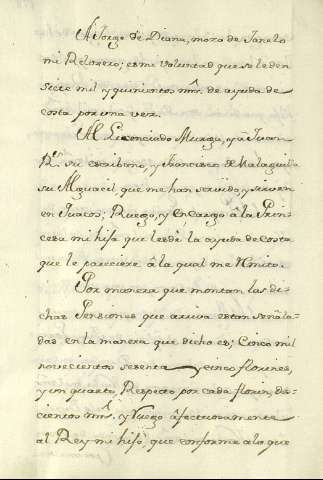 A Jorge de Diana, mozo de Janelo
mi Reloxero; es mi voluntad que se le den
siete mil y quinientos mrs. de ayuda de
costa por una vez.
Al Licenciado Murga, y a Juan
Rs. su escribano, y Francisco de Malaguilla
su Alguacil, que me han servido, y sirven
en Juacos; Ruego, y Encargo â la Prin-
cesa mi hija que les dè la ayuda de costa
que le pareciere â la qual me remito.
Por manera que montan las di-
chas Pensiones que arriva estan señala-
das en la manera que dicho es; Cinco mil
novecientos sesenta y cinco florines,
y un quarto, Respecto por cada florin, dos-
cientos mrs. y Ruego âfectuosamente
al Rey mi hijo, que conforme a lo que